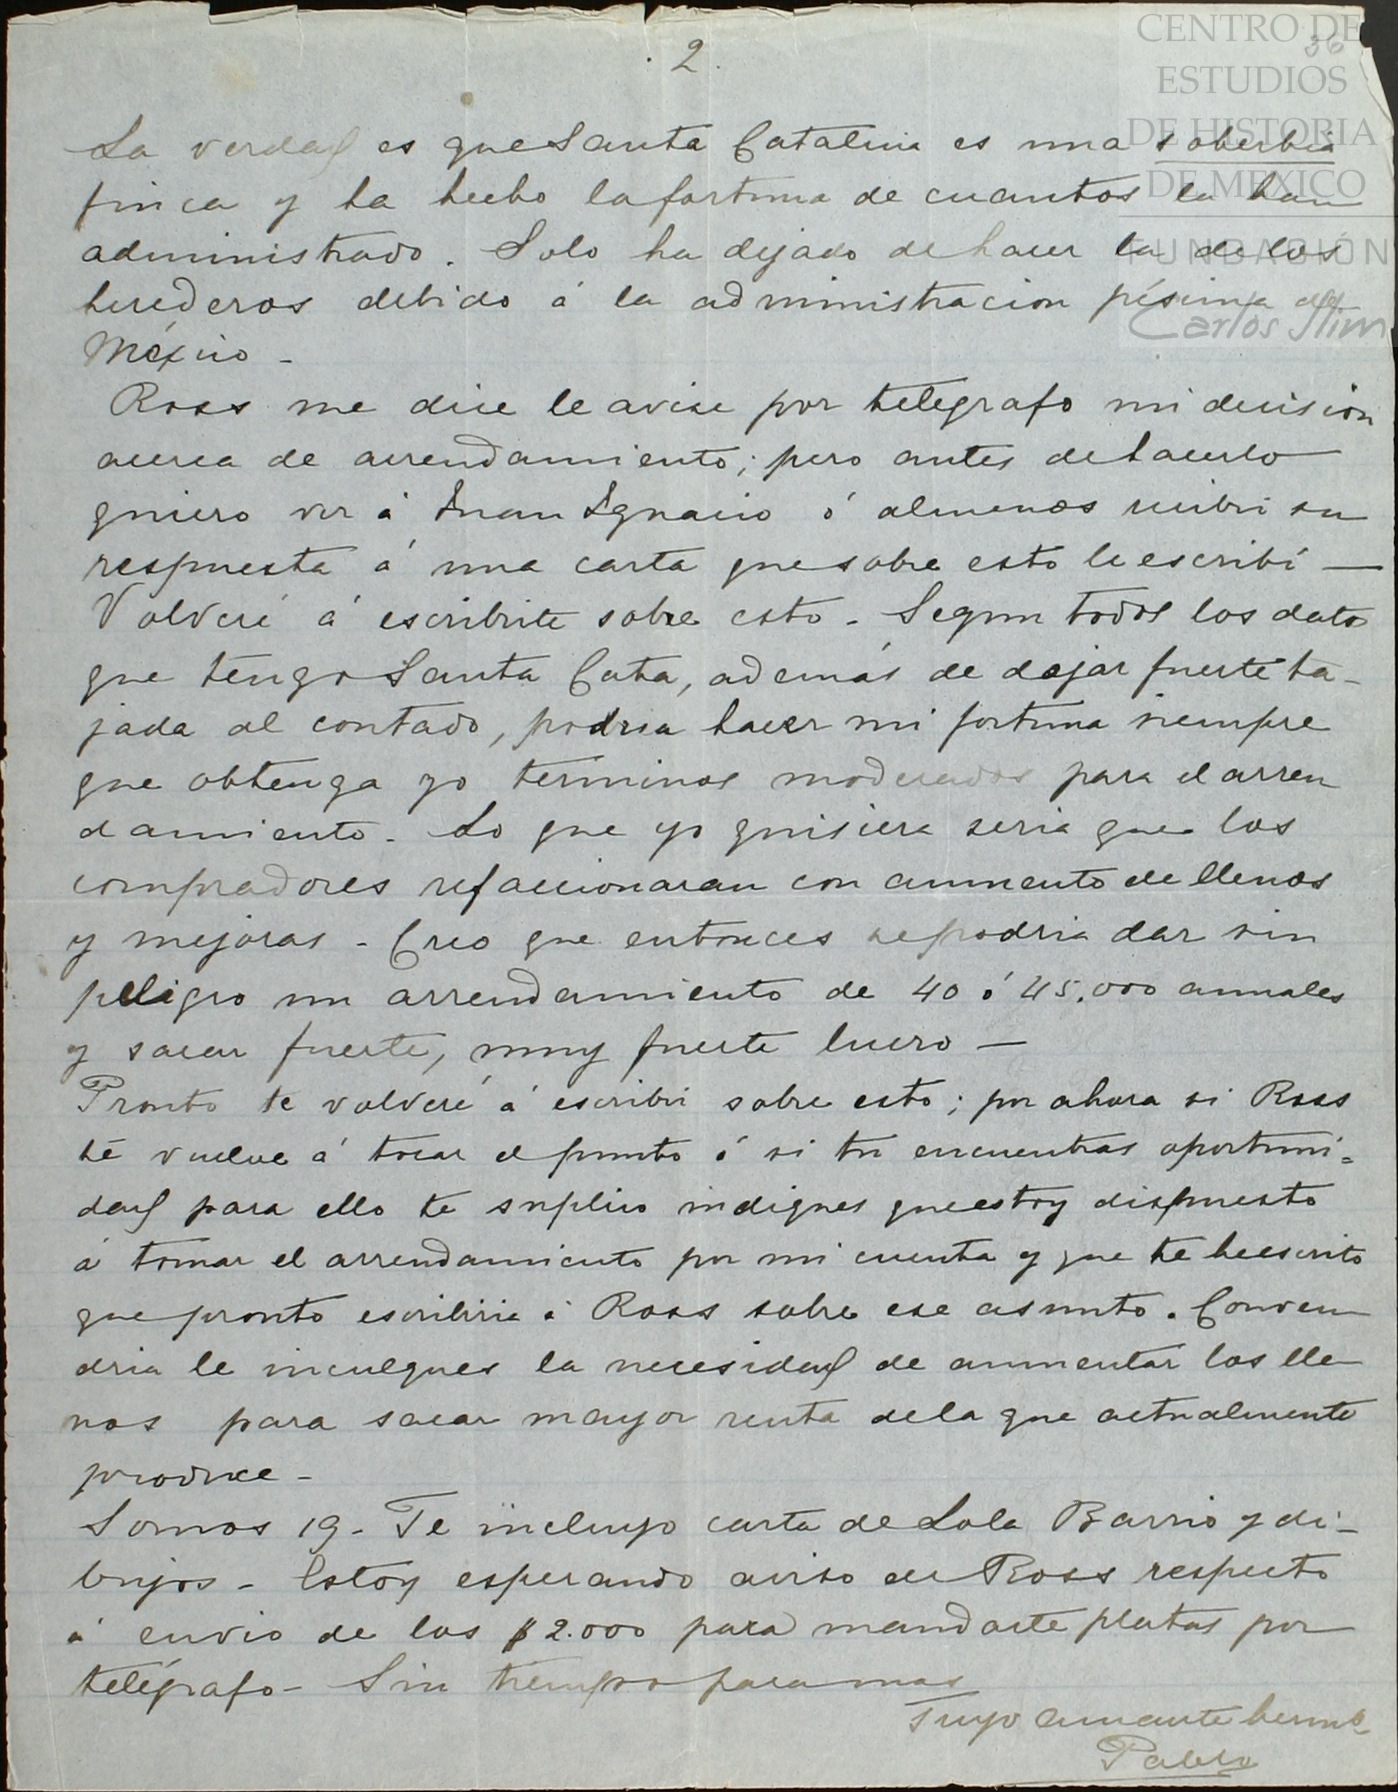 2.
36
CENTRO DE
ESTUDIOS
DE HISTORIA
DE MEXICO
FUNDACIÓN
Carlos Slim
La verdad es que Santa Catalina es una soberbia
finca y ha hecho la fortuna de cuantos la han
administrado. Solo ha dejado de hacer la de los
herederos debido á la administracion pésima de
México -
Ross me dice le avise por telegrafo mi decision
acerca de arrendamiento; pero antes de hacerlo
quiero ver á Juan Ignacio ó almenos recibir su
respuesta á una carta que sobre esto le escribí —
Volveré á escribirte sobre esto - Segun todos los datos
que tengo Santa Cata, además de dejar fuerte ta-
jada al contado, podria hacer mi fortuna siempre
que obtenga yo terminos moderados para el arren
damiento - Lo que yo quisiera seria que los
compradores refaccionaran con aumento de llenos
y mejoras - Creo que entonces se podria dar sin
peligro un arrendamiento de 40 ó 45.000 anuales
y sacar fuerte, muy fuerte lucro —
Pronto te volveré á escribir sobre esto; por ahora si Ross
te vuelve á tocar el punto ó si tu encuentras oportuni=
dad para ello te suplico indiques que estoy dispuesto
á tomar el arrendamiento por mi cuenta y que te he escrito
que pronto escribiria á Ross sobre ese asunto. Conven
dria le inculques la necesidad de aumentar los lle
nos para sacar mayor renta de la que actualmente
produce -
Somos 19 - Te incluyo carta de Lola Barrio y di-
bujos - Estoy esperando aviso de Ross respecto
á envio de los $2.000 para mandarte platas por
telégrafo - Sin tiempo para mas
Tuyo amante hermo
Pablo